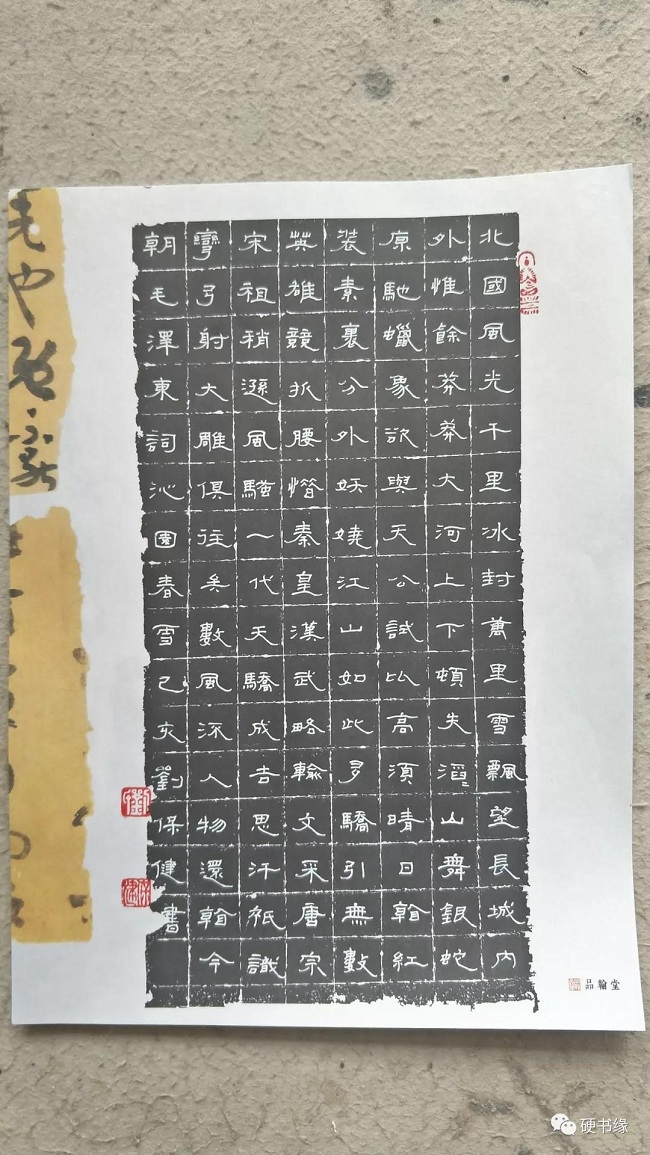 北國風光千里冰封萬里雪飄望長城内
外惟餘莽莽大河上下頓失滔〻山舞銀蛇
原馳蠟象欲與天公試比高須晴日看紅
裝素裹分外妖嬈江山如此多驕引無數
英雄競折腰惜秦皇漢武略輸文采唐宗
宋祖稍遜風騷一代天驕成吉思汗祇識
彎弓射大雕俱往矣數風流人物還看今
朝毛澤東詞沁園春雪己亥劉保健書
品翰堂
硬书缘